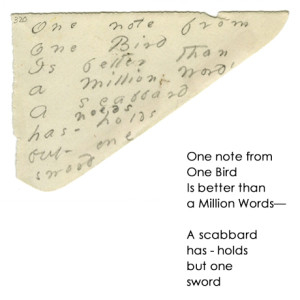 320
One note from
One Bird
Is better than
a million word
A scabbard
needs
has - holds
but - one
sword
One note from
One Bird
Is better than
a Million Words—
A scabbard
has - holds
but one
sword